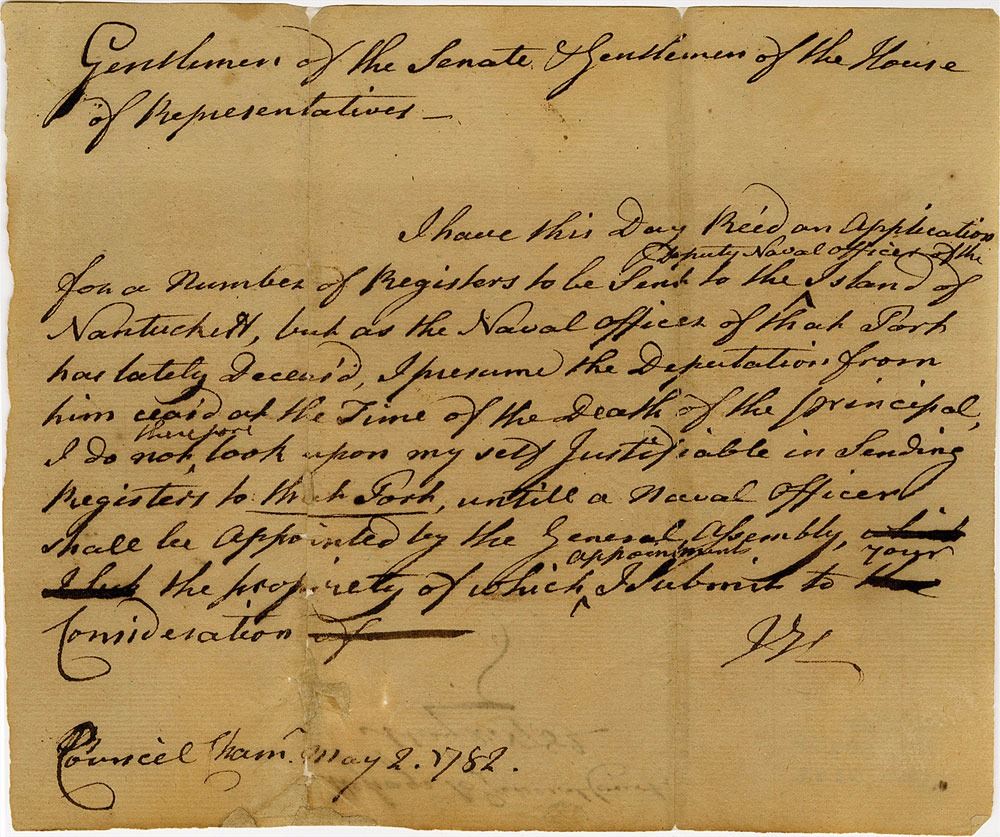 Gentlemen of the Senate & Gentlemen of the House
of Representatives —
I have this Day Rec'd an Application
Deputy Naval Officer of the
for a Number of Registers to be Sent to the ^ Island of
Nantuckett, but as the Naval Officer of that Port
has lately Deceas'd, I presume the Deputation from
him ceas'd at the Time of the Death of the principal,
therefore
I do not look upon my self Justifiable in Sending
Registers to that Port, untill a Naval Officer
shall be Appointed by the General Assembly, which
appointment your
I but the propriety of which ^ I submit to the
Consideration of
JH
Councel Cham.r May 2. 1782.